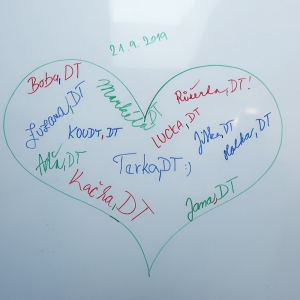 21.9.2019
Boba, DT
Markéta, DT
Růženka, DT!
Zuzana, DT
KOUDY, DT
LUCKA, DT
Jiřka, DT
Radka, DT
Terka, DT :)
Kačka, DT
Jana, DT